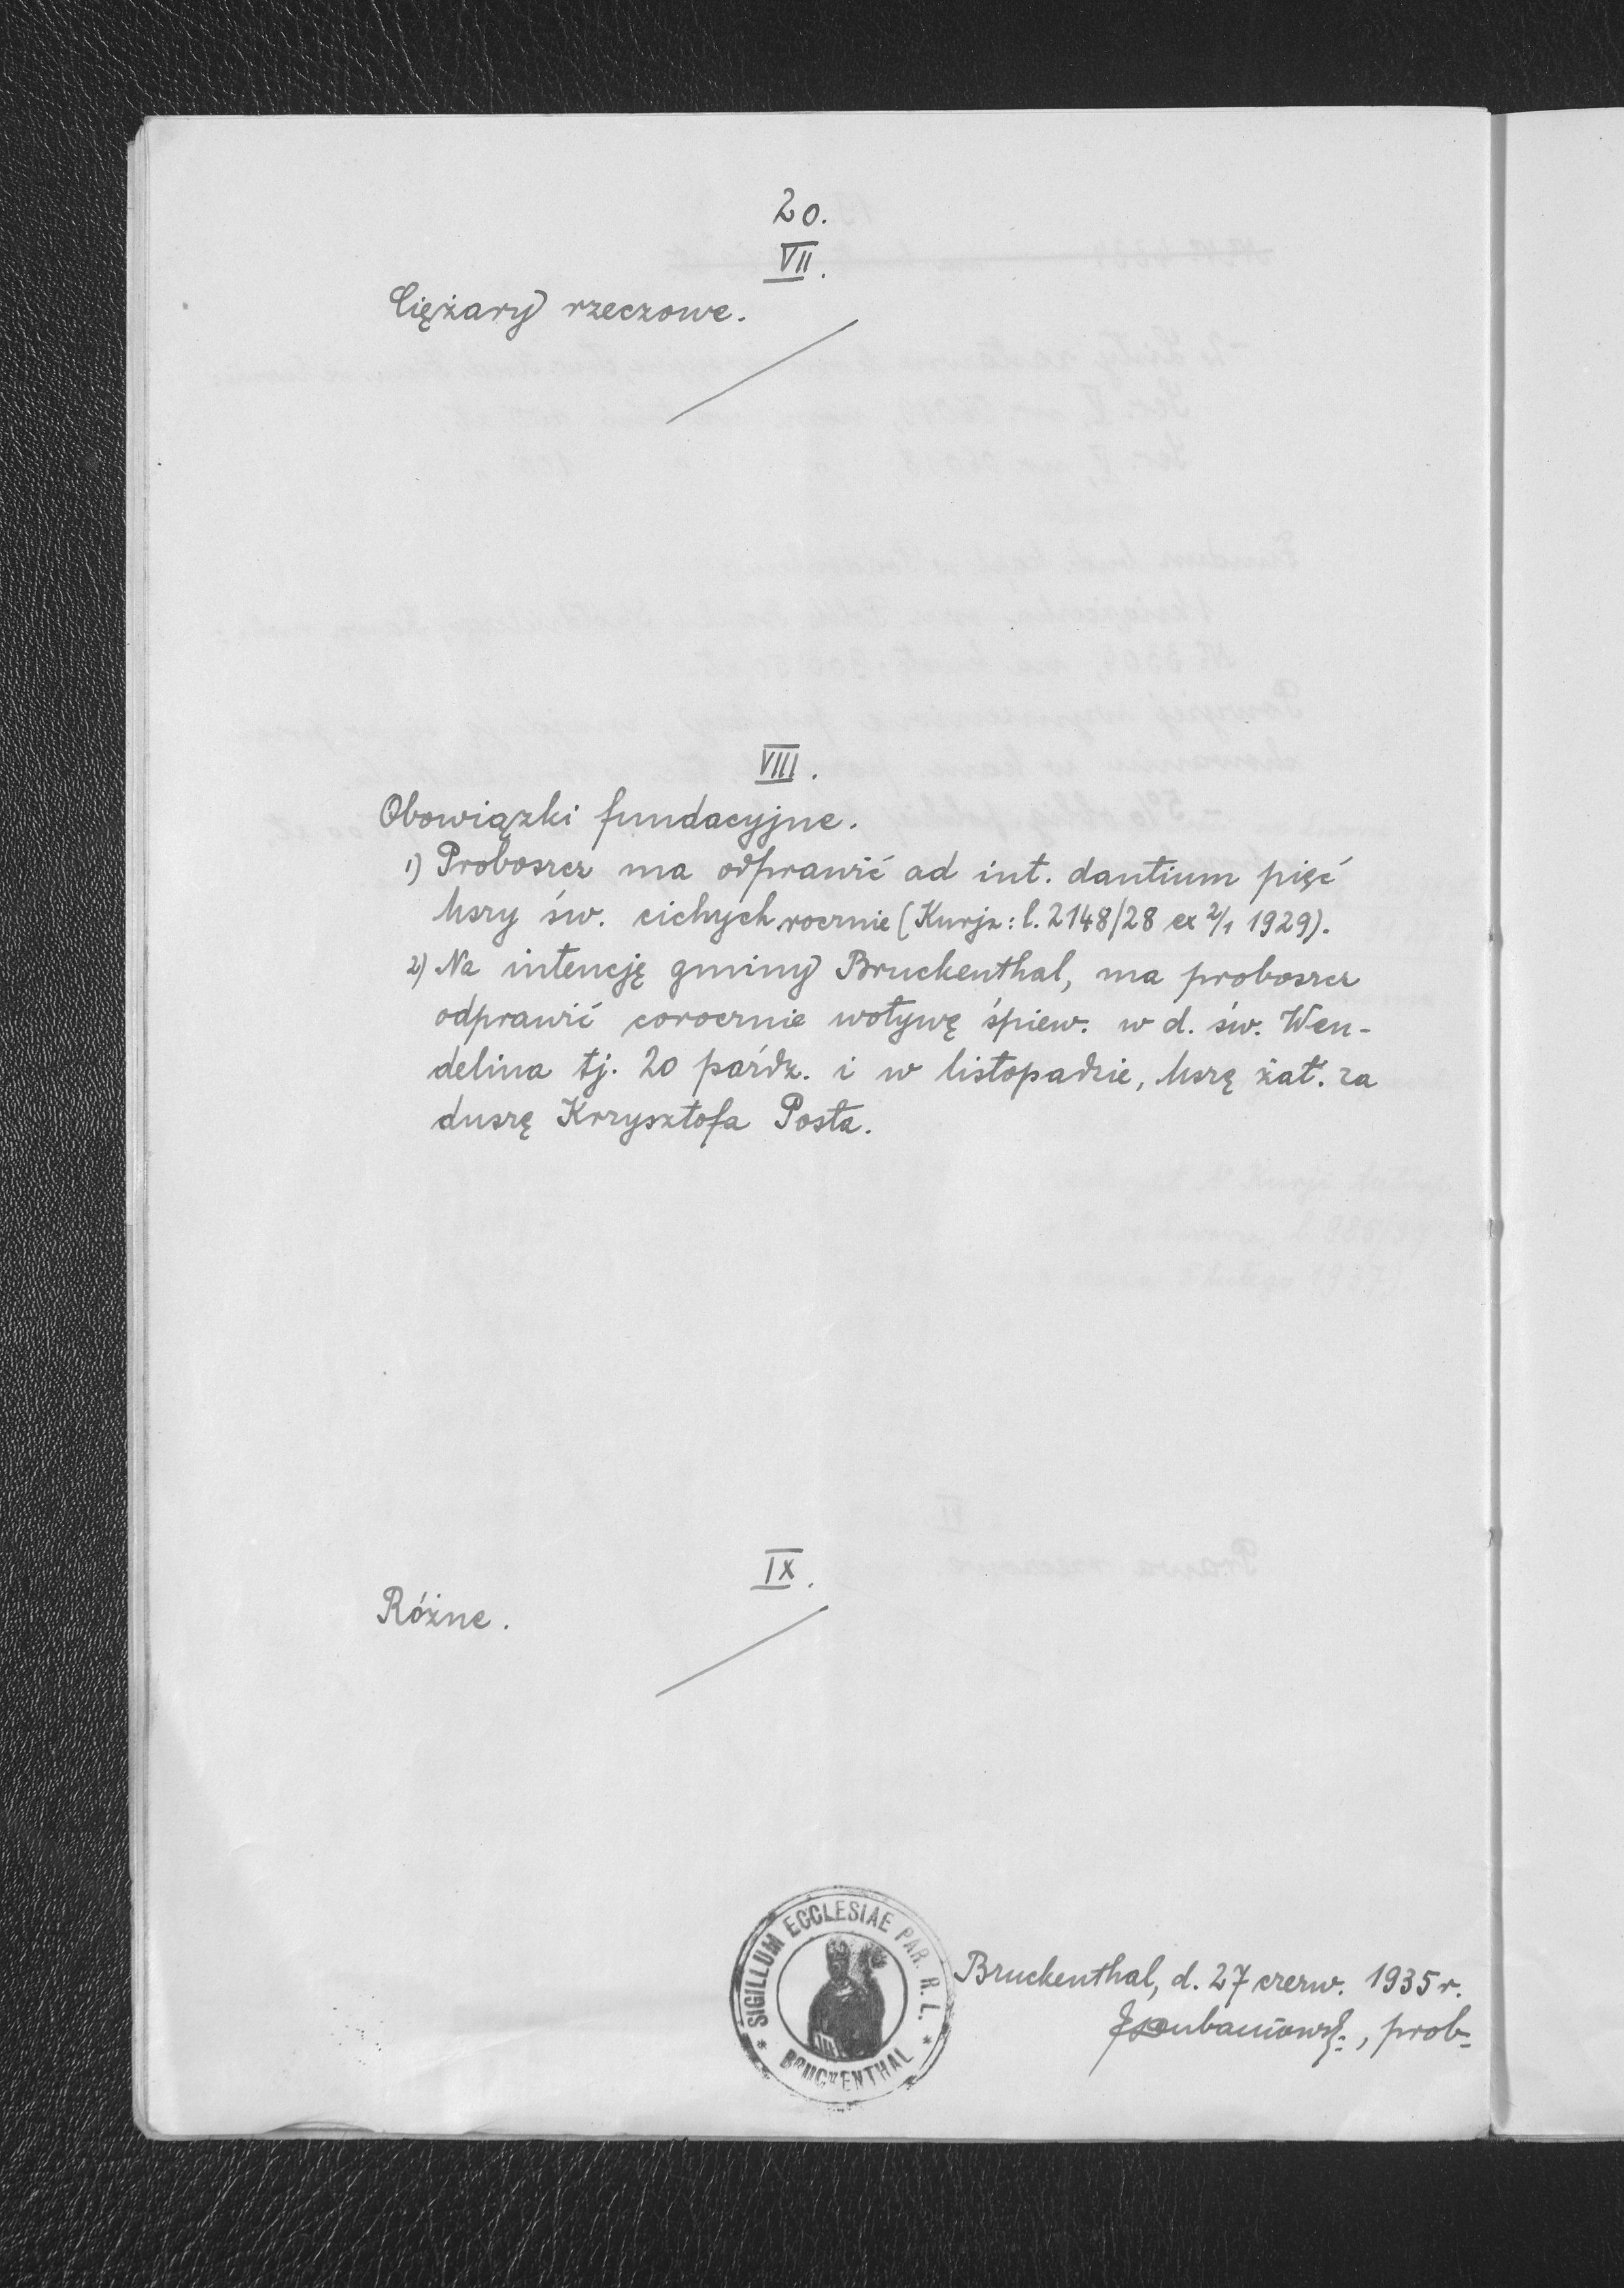 20.
VII.
Ciężary rzeczowe.
VIII.
Obowiązki fundacyjne.
1) Proboszcz ma odprawić ad int. dantium pięć
Mszy św. cichych rocznie (Kurja: l. 2148/28 ex 2/1 1929).
2) Na intencję gminy Bruckenthal, ma proboszcz
odprawić corocznie wotywę śpiew. w d. św. Wen-
delina tj. 20 paźdz. i w listopadzie, Mszę żał. za
duszę Krzysztofa Posta.
IX.
Różne.
SIGILLUM ECCLESIAE PAR. R. L.
* BRUCKENTHAL *
Bruckenthal, d. 27 czerw. 1935 r.
, prob.